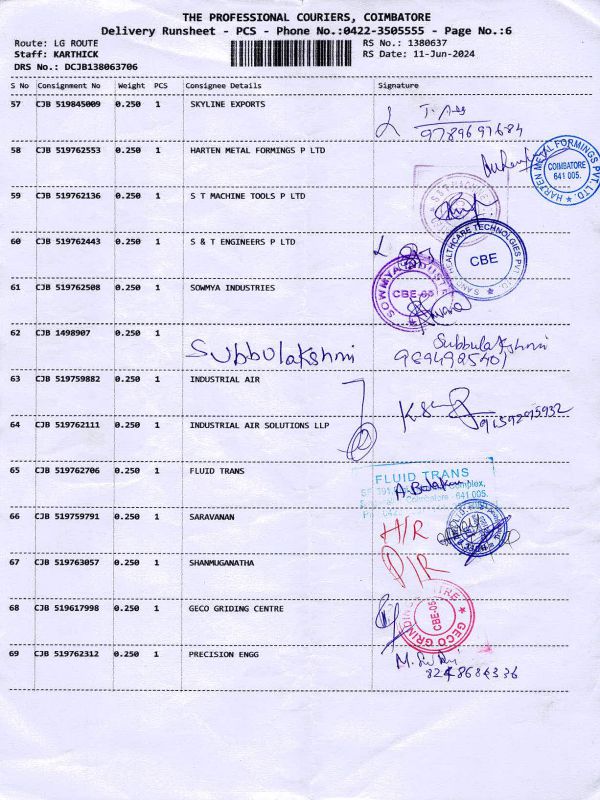 THE PROFESSIONAL COURIERS, COIMBATORE
Delivery Runsheet - PCS - Phone No.:0422-3505555 - Page No.:6
Route: LG ROUTE RS No.: 1380637
Staff: KARTHICK RS Date: 11-Jun-2024
DRS No.: DCJB138063706
S No Consignment No Weight PCS Consignee Details Signature
57 CJB 519845009 0.250 1 SKYLINE EXPORTS
9789697684
58 CJB 519762553 0.250 1 HARTEN METAL FORMINGS P LTD
HARTEN METAL FORMINGS PVT. LTD.
COIMBATORE
641 005.
59 CJB 519762136 0.250 1 S T MACHINE TOOLS P LTD
60 CJB 519762443 0.250 1 S & T ENGINEERS P LTD
HEALTHCARE TECHNOLGIES PVT LTD.
CBE
61 CJB 519762508 0.250 1 SOWMYA INDUSTRIES
SOWMYA
CBE-05
62 CJB 1498907 0.250 1 Subbulakshmi Subbulakshmi
9894985401
63 CJB 519759882 0.250 1 INDUSTRIAL AIR
9159295932
64 CJB 519762111 0.250 1 INDUSTRIAL AIR SOLUTIONS LLP
65 CJB 519762706 0.250 1 FLUID TRANS
FLUID TRANS
Complex,
Coimbatore - 641 005.
66 CJB 519759791 0.250 1 SARAVANAN
H/R
67 CJB 519763057 0.250 1 SHANMUGANATHA
D/R
68 CJB 519617998 0.250 1 GECO GRIDING CENTRE
GECO GRINDING CENTRE
CBE-05
69 CJB 519762312 0.250 1 PRECISION ENGG
8248684336